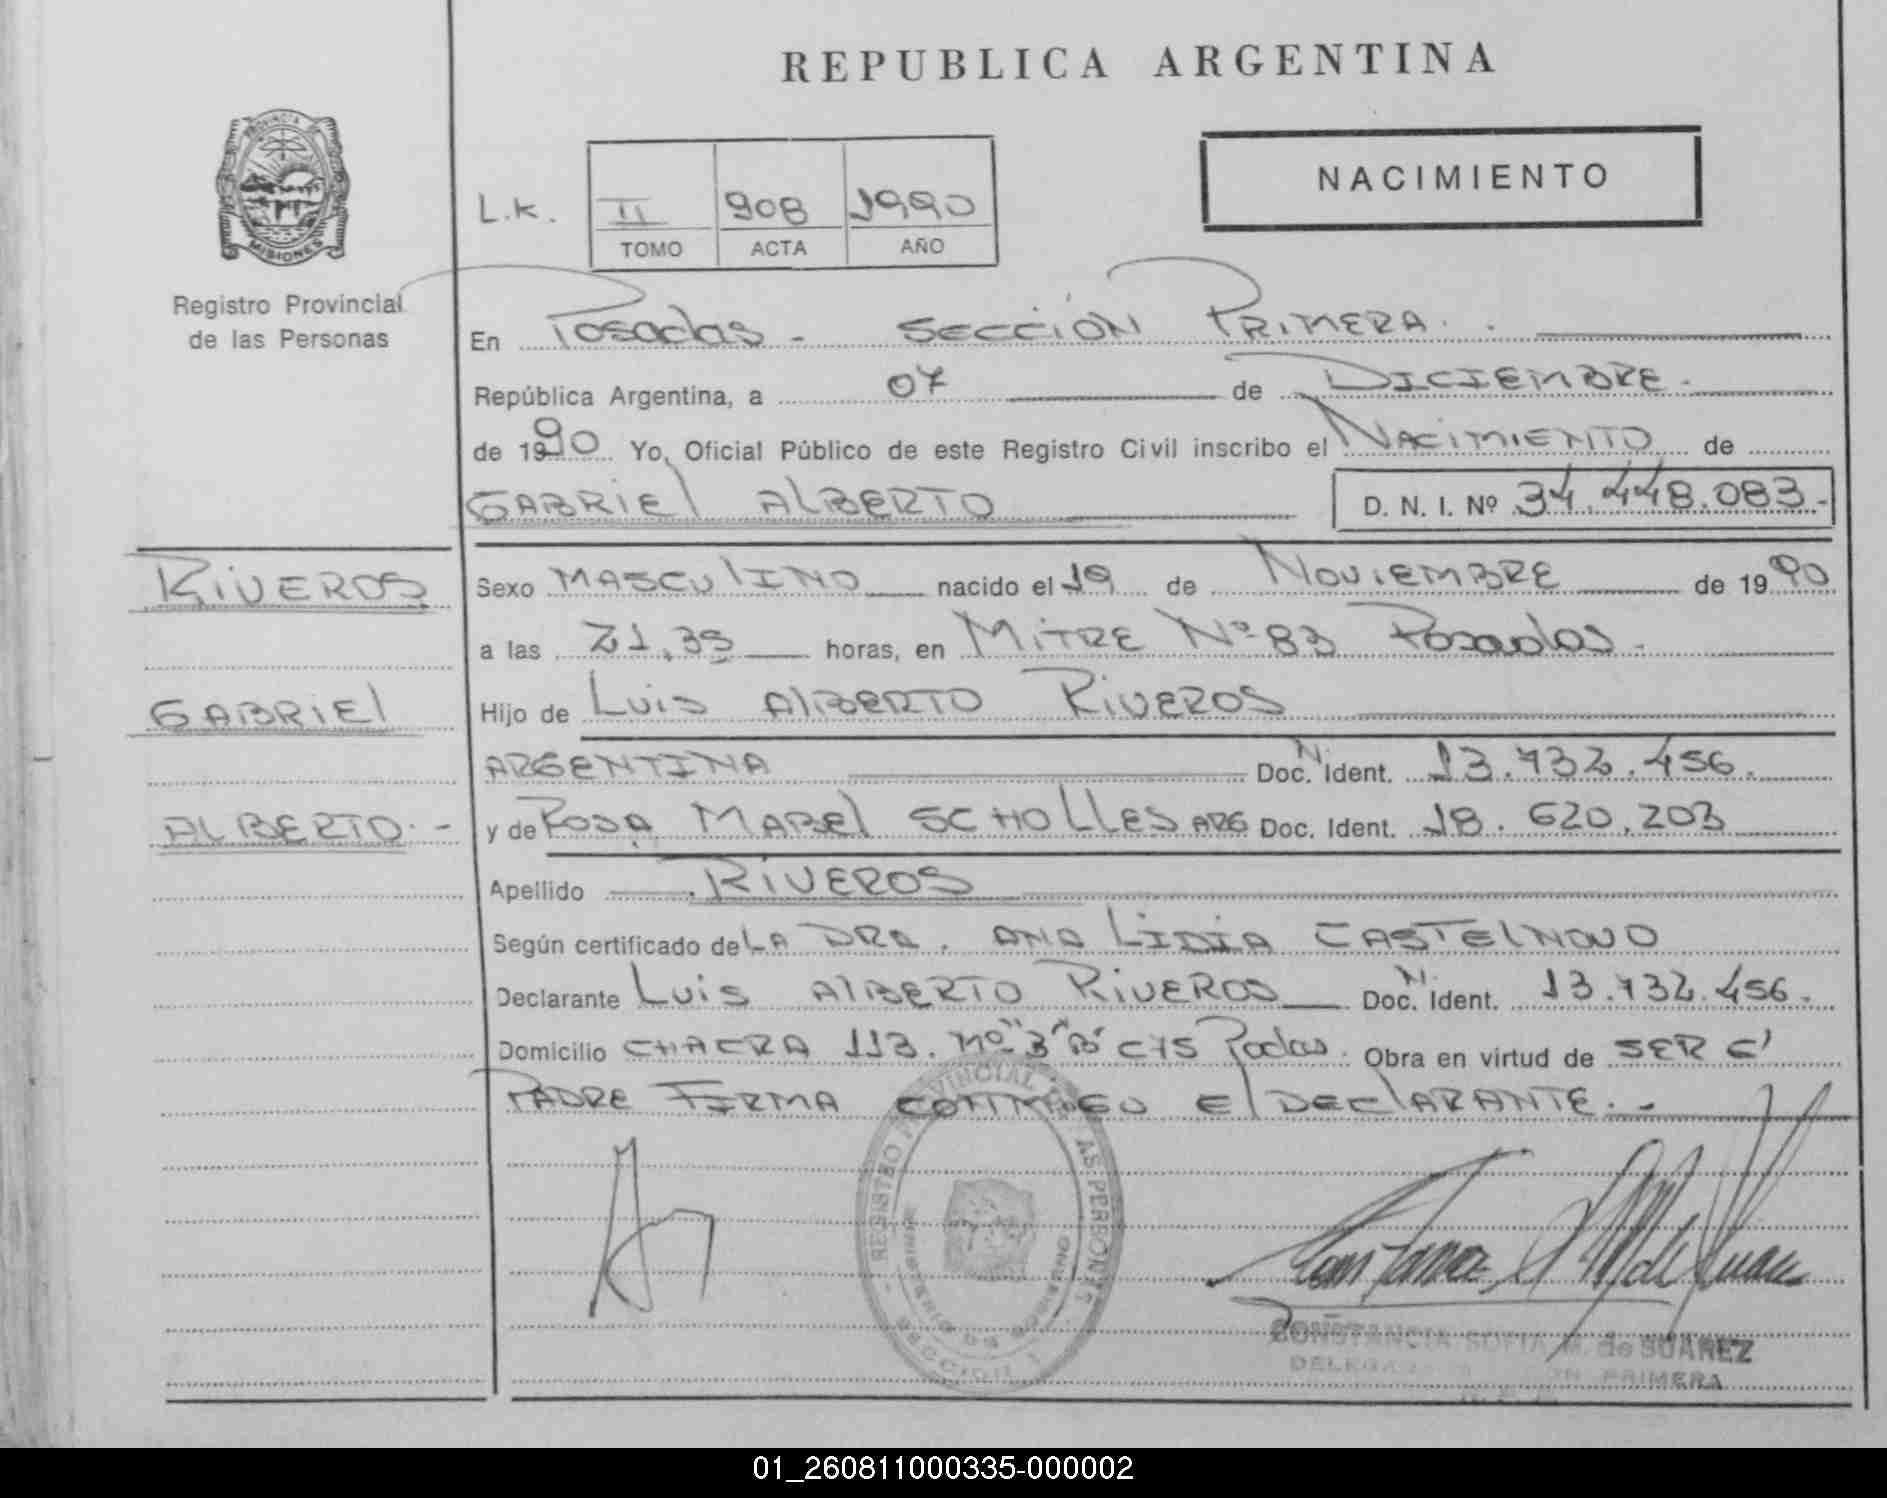 REPUBLICA ARGENTINA
PROVINCIA DE
MISIONES
Registro Provincial
de las Personas
NACIMIENTO
L.K. II 908 1990
TOMO ACTA AÑO
En Posadas - SECCIÓN PRIMERA.
República Argentina, a 07 de DICIEMBRE.
de 1990 Yo, Oficial Público de este Registro Civil inscribo el NACIMIENTO de
GABRIEL ALBERTO D. N. I. Nº 34.448.083.-
RIVEROS
GABRIEL
ALBERTO.-
Sexo MASCULINO nacido el 19 de NOVIEMBRE de 1990
a las 21,35 horas, en MITRE Nº 83 Posadas.
Hijo de LUIS ALBERTO RIVEROS
ARGENTINA Doc. N. Ident. 13.732.456.
y de ROSA MABEL SCHOLLES ARG Doc. Ident. 18.620.203
Apellido RIVEROS
Según certificado de LA DRA. ANA LIDIA CASTELNOVO
Declarante LUIS ALBERTO RIVEROS Doc. N. Ident. 13.732.456.
Domicilio CHACRA 113. Nº "3" "B" Obra en virtud de SER el
PADRE FIRMA CONMIGO El DEClARANTE.-
REGISTRO PROVINCIAL AS PERSONAS
MINISTERIO DE GOBIERNO
SECCION 1
CONSTANCIA SOFIA M. de SUAREZ
PRIMERA
01_260811000335-000002